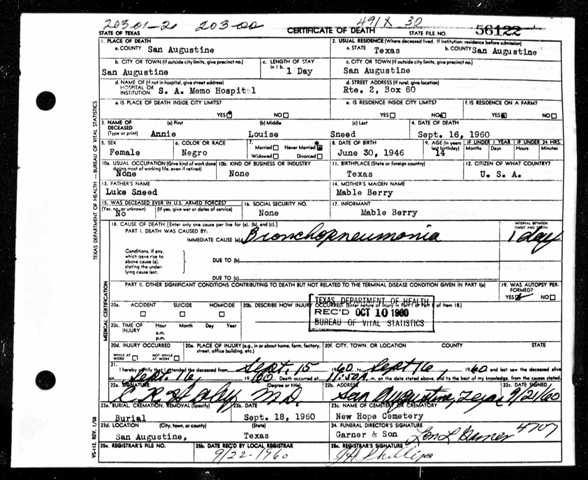 20301-2 203-00 491X 30
STATE OF TEXAS CERTIFICATE OF DEATH STATE FILE NO. 56122
1. PLACE OF DEATH 2. USUAL RESIDENCE (Where deceased lived. If institution, residence before admission)
a. COUNTY San Augustine a. STATE Texas b. COUNTY San Augustine
b. CITY OR TOWN (If outside city limits, give precinct no.) c. LENGTH OF STAY c. CITY OR TOWN (If outside city limits, give precinct no.)
San Augustine 1 Day San Augustine
d. NAME OF (If not in hospital, give street address) d. STREET ADDRESS (If rural, give location)
HOSPITAL OR INSTITUTION S. A. Memo Hospital Rte. 2, Box 60
e. IS PLACE OF DEATH INSIDE CITY LIMITS? e. IS RESIDENCE INSIDE CITY LIMITS? f. IS RESIDENCE ON A FARM?
YES NO YES NO YES NO
3. NAME OF DECEASED (Type or print) (a) First (b) Middle (c) Last 4. DATE OF DEATH
Annie Louise Sneed Sept. 16, 1960
5. SEX 6. COLOR OR RACE 7. Married Never Married Widowed Divorced 8. DATE OF BIRTH 9. AGE (In years last birthday) IF UNDER 1 YEAR IF UNDER 24 HRS.
Months Days Hours Minutes
Female Negro June 30, 1946 14
10a. USUAL OCCUPATION (Give kind of work done during most of working life, even if retired) 10b. KIND OF BUSINESS OR INDUSTRY 11. BIRTHPLACE (State or foreign country) 12. CITIZEN OF WHAT COUNTRY?
None None Texas U. S. A.
13. FATHER'S NAME 14. MOTHER'S MAIDEN NAME
Luke Sneed Mable Berry
15. WAS DECEASED EVER IN U.S. ARMED FORCES? 16. SOCIAL SECURITY NO. 17. INFORMANT
(Yes, no, or unknown) (If yes, give war or dates of service)
No None Mable Berry
18. CAUSE OF DEATH [Enter only one cause per line for (a), (b), and (c).] INTERVAL BETWEEN ONSET AND DEATH
PART I. DEATH WAS CAUSED BY:
IMMEDIATE CAUSE (a) Bronchopneumonia 1 day
Conditions, if any, which gave rise to above cause (a), stating the underlying cause last.
DUE TO (b)
DUE TO (c)
PART II. OTHER SIGNIFICANT CONDITIONS CONTRIBUTING TO DEATH BUT NOT RELATED TO THE TERMINAL DISEASE CONDITION GIVEN IN PART I(a) 19. WAS AUTOPSY PERFORMED?
YES NO
20a. ACCIDENT SUICIDE HOMICIDE 20b. DESCRIBE HOW INJURY OCCURRED. (Enter nature of injury in Part I or Part II of item 18.)
TEXAS DEPARTMENT OF HEALTH
REC'D OCT 10 1960
BUREAU OF VITAL STATISTICS
20c. TIME OF INJURY Hour Month Day Year
a.m.
p.m.
20d. INJURY OCCURRED 20e. PLACE OF INJURY (e.g., in or about home, farm, factory, street, office building, etc.) 20f. CITY, TOWN, OR LOCATION COUNTY STATE
WHILE AT WORK NOT WHILE AT WORK
21. I hereby certify that I attended the deceased from Sept. 15 1960 Sept 16, 1960 and last saw the deceased alive
on Sept. 16, 1960 Death occurred at 11:50A. m., on the date stated above, and to the best of my knowledge, from the causes stated.
22a. SIGNATURE Degree or title 22b. ADDRESS 22c. DATE SIGNED
M.D. San Augustine, Texas 9/21/60
23a. BURIAL, CREMATION, REMOVAL (Specify) 23b. DATE 23c. NAME OF CEMETERY OR CREMATORY
Burial Sept. 18, 1960 New Hope Cemetery
23d. LOCATION (City, town, or county) (State) 24. FUNERAL DIRECTOR'S SIGNATURE
San Augustine, Texas Garner & Son 4707
25a. REGISTRAR'S FILE NO. 25b. DATE REC'D BY LOCAL REGISTRAR 25c. REGISTRAR'S SIGNATURE
9/22-1960
TEXAS DEPARTMENT OF HEALTH — BUREAU OF VITAL STATISTICS
MEDICAL CERTIFICATION
VS-112, REV. 1/58